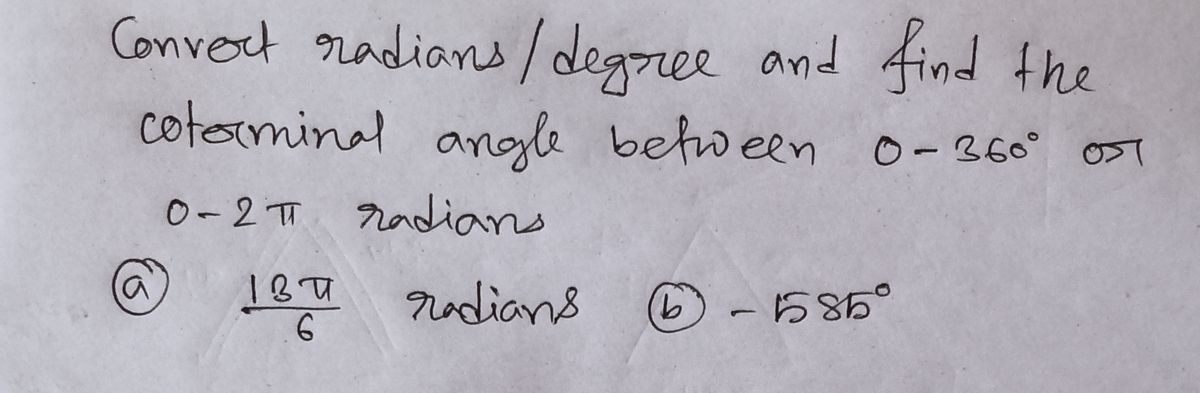 Convert radians/degree and find the
coterminal angle between 0-360° or
0-2π radians
ⓐ 13π/6 radians ⓑ -1585°